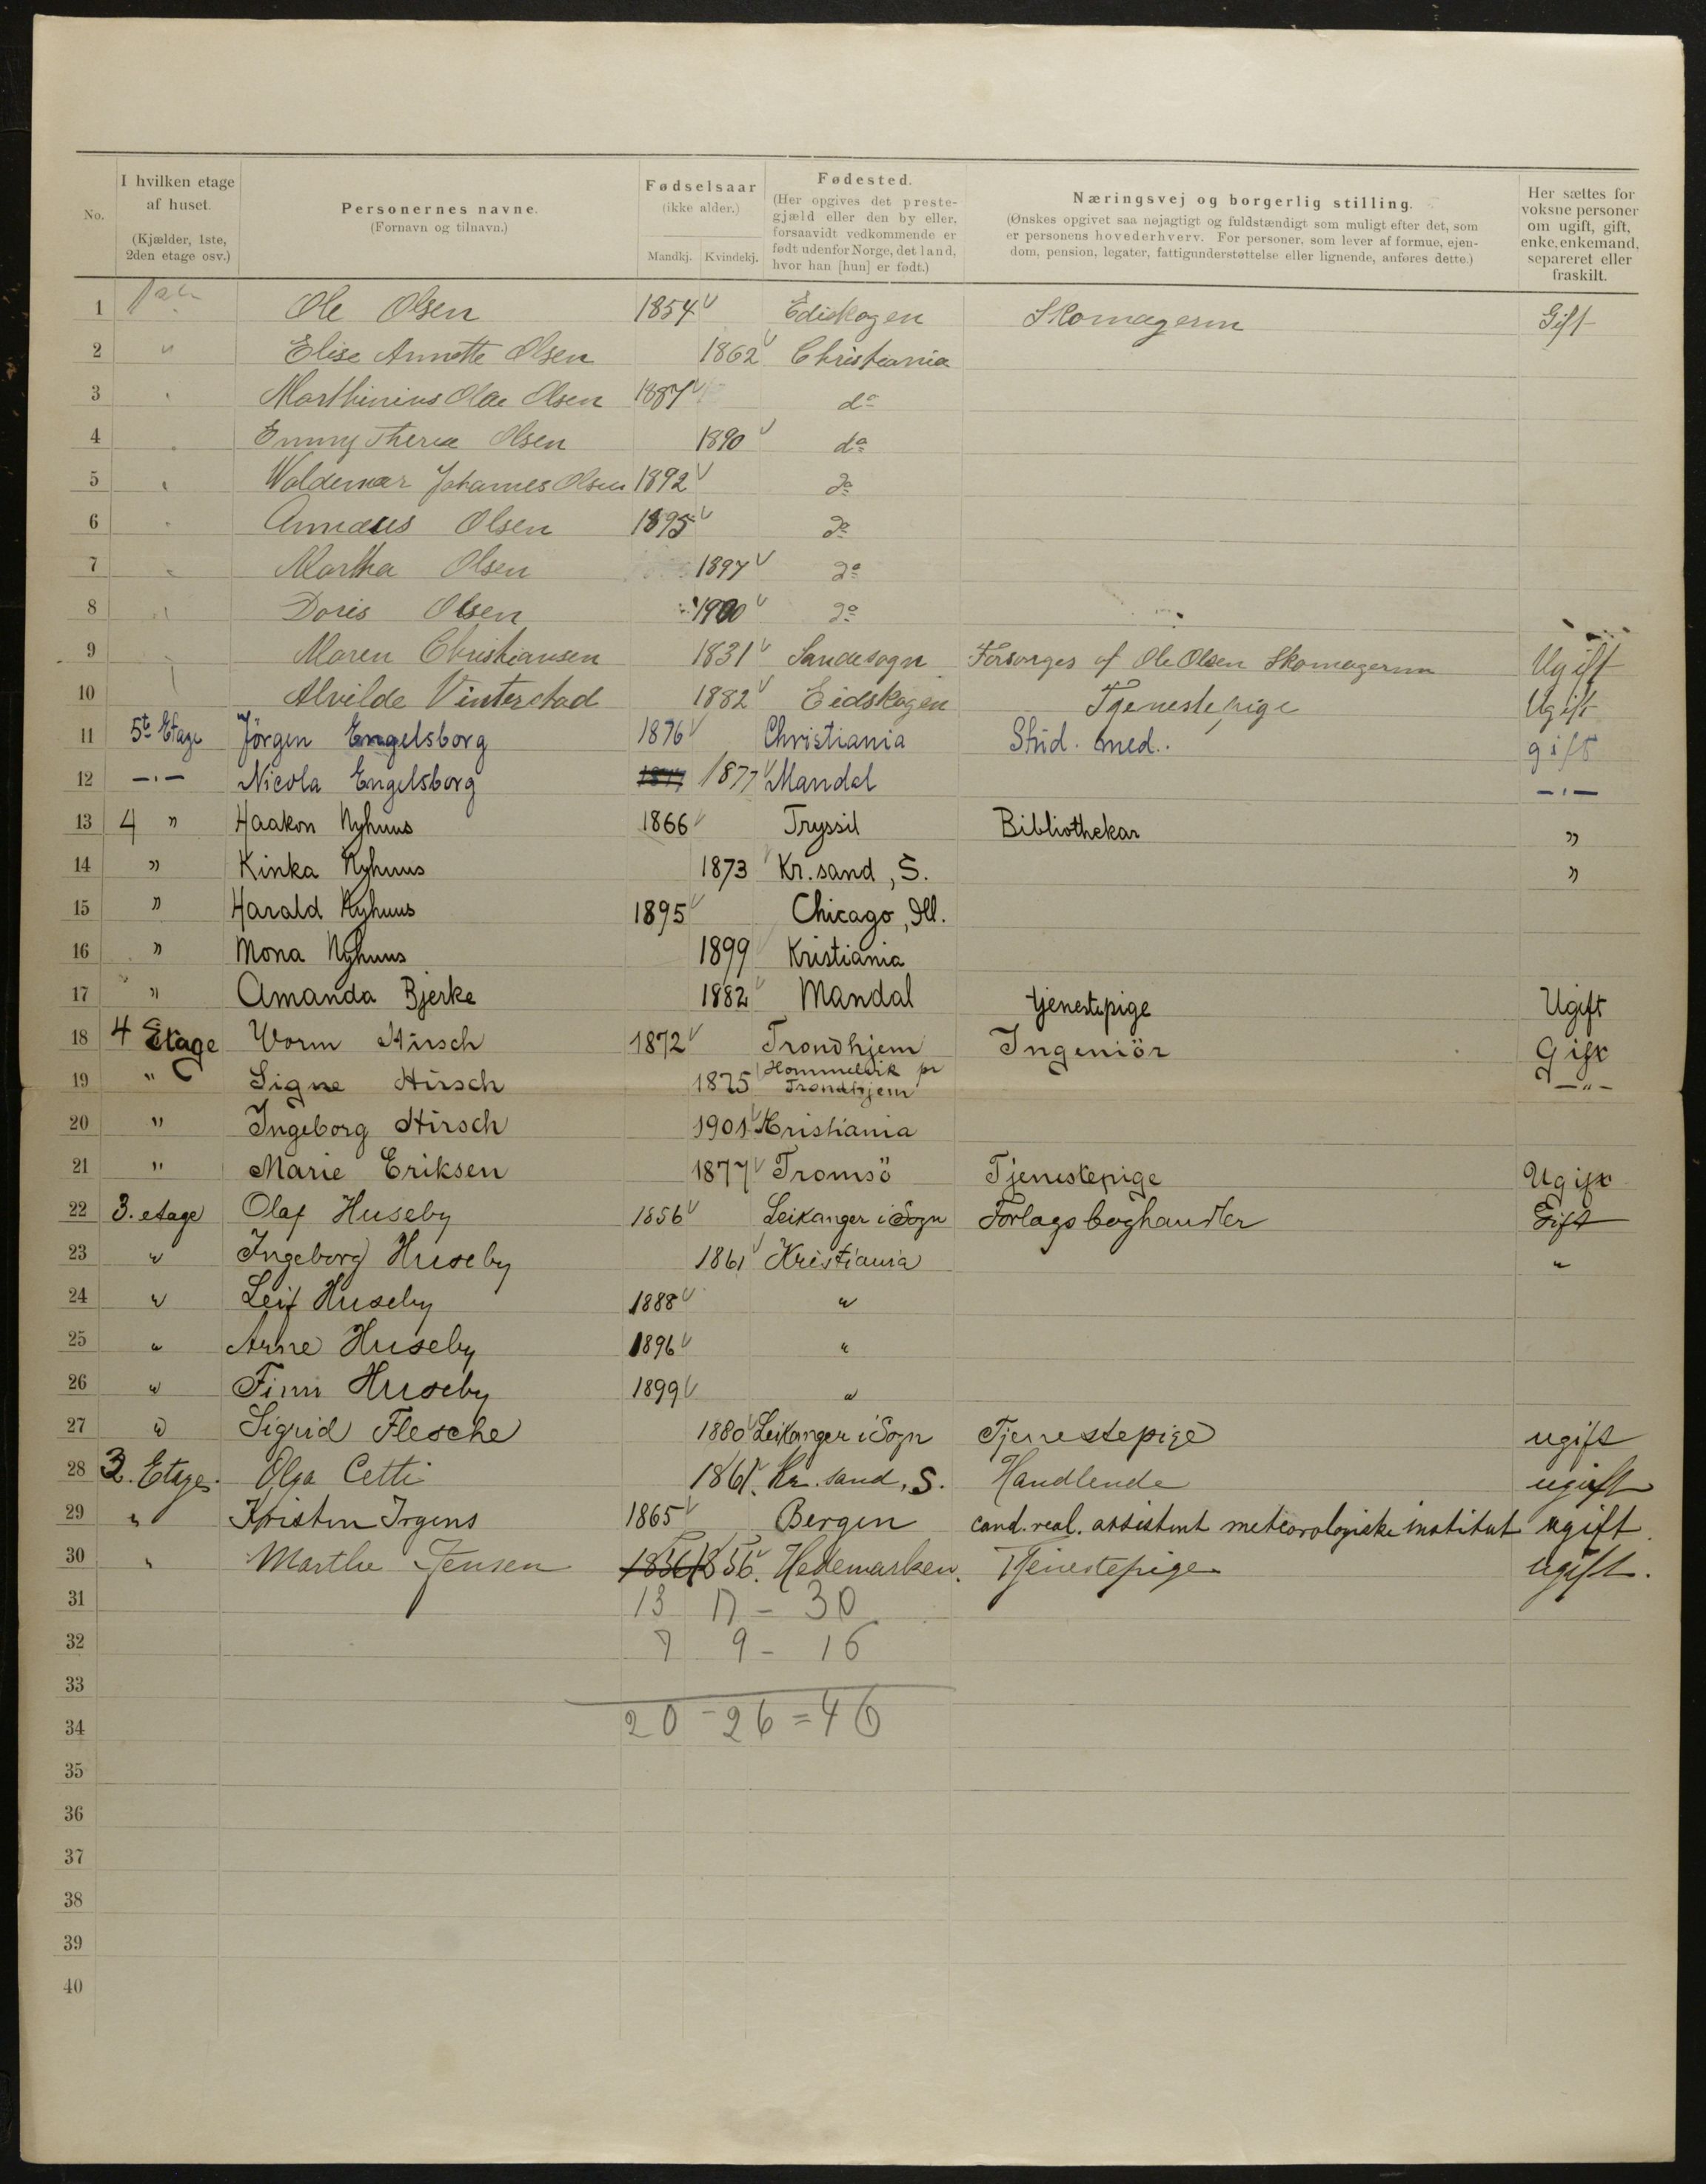 No.
I hvilken etage af huset.
(Kjælder, 1ste, 2den etage osv.)
Personernes navne.
(Fornavn og tilnavn.)
Fødselsaar
(ikke alder.)
Mandkj. Kvindekj.
Fødested.
(Her opgives det prestegjæld eller den by eller, forsaavidt vedkommende er født udenfor Norge, det land, hvor han [hun] er født.)
Næringsvej og borgerlig stilling.
(Ønskes opgivet saa nøjagtigt og fuldstændigt som muligt efter det, som er personens hovederhverv. For personer, som lever af formue, ejendom, pension, legater, fattigunderstøttelse eller lignende, anføres dette.)
Her sættes for voksne personer om ugift, gift, enke, enkemand, separeret eller fraskilt.
1 Ole Olsen 1854 Ediskogen Skomagerm Gift
2 " Elise Annette Olsen 1862 Christiania
3 Marthinius Olae Olsen 1887 do
4 Emmy Therea Olsen 1890 do
5 Waldemar Johannes Olsen 1892 do
6 Annæus Olsen 1895 do
7 Martha Olsen 1897 do
8 Doris Olsen 1900 do
9 Maren Christiansen 1831 Sandesogn Forsørges af Ole Olsen Skomagerm Ugift
10 Alvilde Vinterstad 1882 Eidskogen Tjenestepige Ugift
11 5t Etage Jörgen Engelsborg 1876 Christiania Stud. med. gift
12 -"- Nicola Engelsborg 1877 1877 Mandal -"-
13 4 " Haakon Nyhuus 1866 Tryssil Bibliothekar "
14 " Kinka Nyhuus 1873 Kr.sand, S. "
15 " Harald Nyhuus 1895 Chicago, Ill.
16 " Mona Nyhuus 1899 Kristiania
17 " Amanda Bjerke 1882 Mandal tjenestepige Ugift
18 4 Etage Worm Hirsch 1872 Trondhjem Ingeniör Gift
19 " Signe Hirsch 1875 Hommelvik pr Trondhjem -"-
20 " Ingeborg Hirsch 1901 Kristiania
21 " Marie Eriksen 1877 Tromsö Tjenestepige Ugift
22 3. etage Olaf Huseby 1856 Leikanger i Sogn Forlagsboghandler Gift
23 " Ingeborg Huseby 1861 Kristiania "
24 " Leif Huseby 1888 "
25 " Arne Huseby 1896 "
26 " Finn Huseby 1899 "
27 " Sigrid Flesche 1880 Leikanger i Sogn Tjenestepige ugift
28 3. Etage. Olga Cetti 1861. Kr. sand, S. Handlende ugift
29 " Kristen Irgens 1865 Bergen cand. real. assistent meteorologiske institut ugift
30 " Marthe Jensen 1856 1856. Hedemarken. Tjenestepige ugift.
31 13 17 - 30
32 7 9 - 16
33
34 20 - 26 = 46
35
36
37
38
39
40